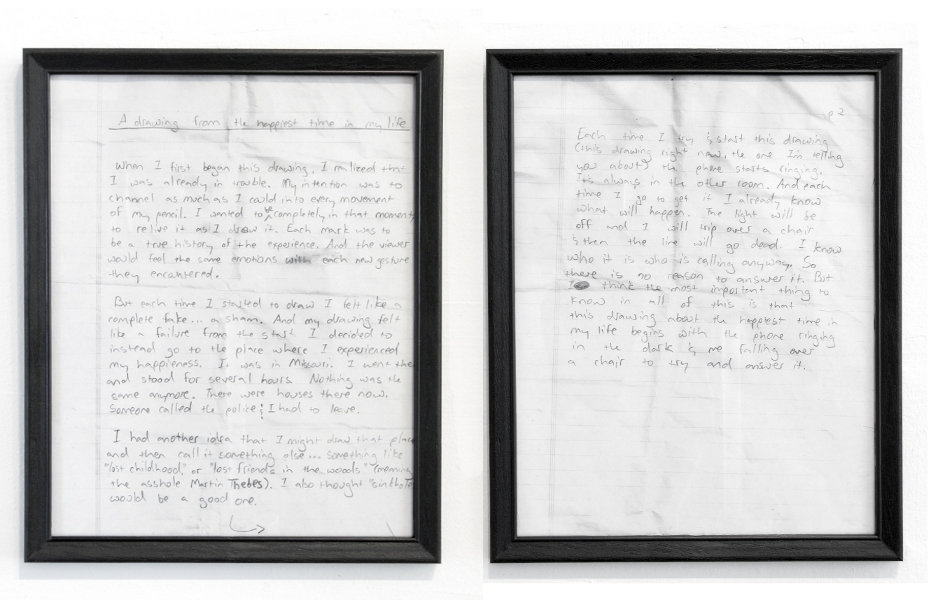 A drawing from the happiest time in my life
When I first began this drawing, I realized that
I was already in trouble. My intention was to
channel as much as I could into every movement
of my pencil. I wanted to be completely in that moment
to relive it as I drew it. Each mark was to
be a true history of the experience. And the viewer
would feel the same emotions with each new gesture
they encountered.
But each time I started to draw I felt like a
complete fake... a sham. And my drawing felt
like a failure from the start. I decided to
instead go to the place where I experienced
my happiness. It was in Missouri. I went there
and stood for several hours. Nothing was the
same anymore. There were houses there now.
Someone called the police; I had to leave.
I had another idea that I might draw that place
and then call it something else... something like
"lost childhood," or "lost friends in the woods" (meaning
the asshole Martin Thebes). I also thought "sinkhole"
would be a good one.
p 2
Each time I try & start this drawing
(this drawing right now, the one I'm telling
you about) the phone starts ringing.
It's always in the other room. And each
time I go to get it I already know
what will happen. The light will be
off and I will trip over a chair
& then the line will go dead. I know
who it is who is calling anyway. So
there is no reason to answer it. But
I think the most important thing to
know in all of this is that
this drawing about the happiest time in
my life begins with the phone ringing
in the dark & me falling over
a chair to try and answer it.